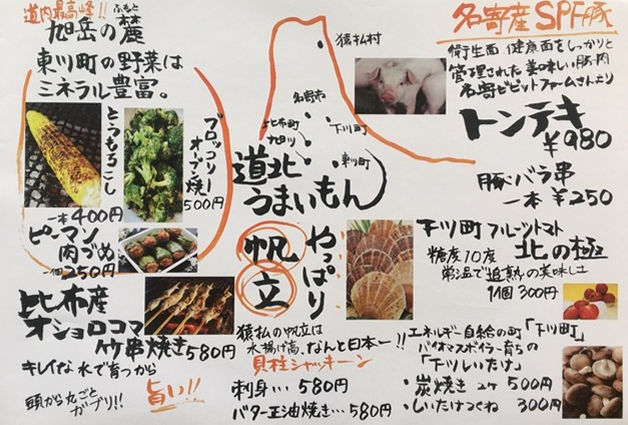 道内最高峰!!
旭岳の麓
ふもと
東川町の野菜は
ミネラル豊富。
とうもろこし
一本400円
ブロッコリー
オーブン焼
500円
ピーマン
肉づめ
一個250円
比布産
オショロコマ
竹串焼き580円
キレイな水で育つから
頭から丸ごと
ガブリ!!
旨い!!
猿払村
名寄市
比布町
旭川
下川町
東川町
道北
うまいもん
やっぱり
帆立
猿払の帆立は
水揚げ高、なんと日本一!!
貝柱シャッキーン
刺身…580円
バター正油焼き…580円
名寄産SPF豚
衛生面 健康面をしっかりと
管理された美味しい豚肉
名寄ビビットファームさんより
トンテキ
¥980
豚バラ串
一本 ¥250
下川町 フルーツトマト
北の極
糖度10度
常温で追熟の美味しさ
1個300円
エネルギー自給の町「下川町」
バイオマスボイラー育ちの
「下川しいたけ」
・炭焼き 2ヶ 500円
・しいたけつくね 300円